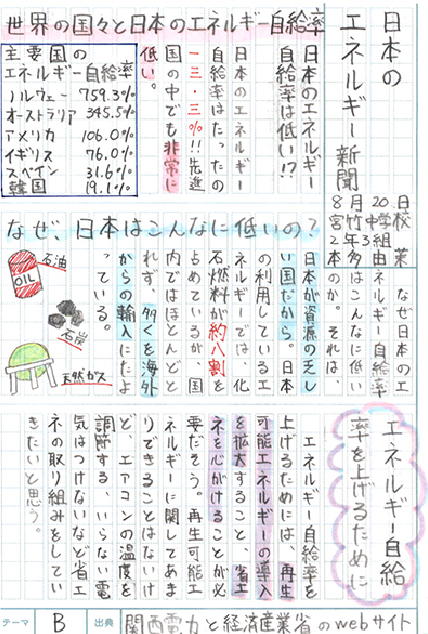 日本の
エネルギー新聞
8月20日
宮竹中学校
2年3組
本多由茉
世界の国々と日本のエネルギー自給率
日本のエネルギー
自給率は低い!?
日本のエネルギー
自給率はたったの
一三・三%!!先進
国の中でも非常に
低い。
主要国の
エネルギー自給率
ノルウェー 759.3%
オーストラリア 345.5%
アメリカ 106.0%
イギリス 76.0%
スペイン 31.6%
韓国 19.1%
なぜ、日本はこんなに低いの?
なぜ日本のエ
ネルギー自給率
はこんなに低い
のか。それは、
日本が資源の乏し
い国だから。日本
の利用しているエ
ネルギーでは、化
石燃料が約八割を
占めているが、国
内ではほとんどと
れず、多くを海外
からの輸入にたよ
っている。
石油
OIL
石炭
天然ガス
エネルギー自給
率を上げるために
エネルギー自給率を
上げるためには、再生
可能エネルギーの導入
を拡大すること、省エ
ネを心がけることが必
要だそう。再生可能エ
ネルギーに関してあま
りできることはないけ
ど、エアコンの温度を
調節する、いらない電
気はつけないなど省エ
ネの取り組みをしてい
きたいと思う。
テーマ B 出典 関西電力と経済産業省のwebサイト